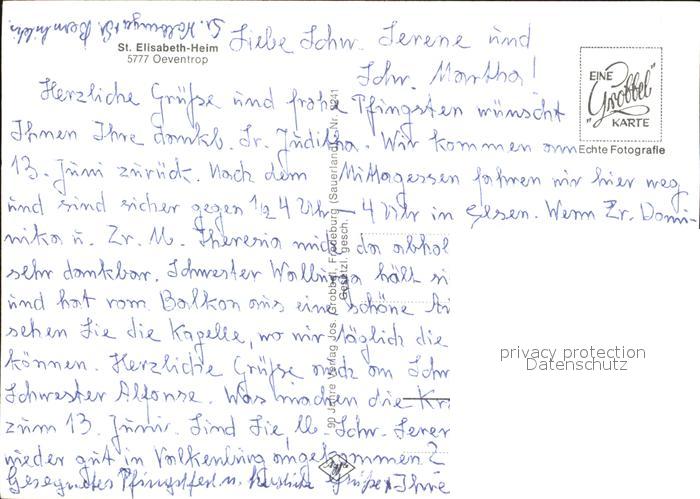 St. Elisabeth-Heim
5777 Oeventrop
Liebe Schw. Serene und
Schw. Martha!
EINE
"Grobbel"
KARTE
Echte Fotografie
Herzliche Grüße und frohe Pfingsten wünscht
Ihnen Ihre dankb. Sr. Juditha. Wir kommen am
13. Juni zurück. Nach dem Mittagessen fahren wir hier weg
und sind sicher gegen 1/2 4 Uhr – 4 Uhr in Essen. Wenn Zr. Domi-
nika u. Zr. M. Theresia mich da abhol
sehr dankbar. Schwester hält si
und hat vom Balkon aus eine schöne
sehen Sie die Kapelle, wo wir täglich die
können. Herzliche Grüße auch an Schw
Schwester Alfonse. Was machen die Kr
zum 13. Juni. Sind Sie, lb. Schw. Seren
wieder gut in Valkenburg angekommen?
Gesegnetes Pfingstfest u. herzliche Grüße Ihre
90 Jahre Verlag Jos. Grobbel, Fredeburg (Sauerland) Nr. 9241
Gesetzl. gesch.
Agfa
privacy protection
Datenschutz